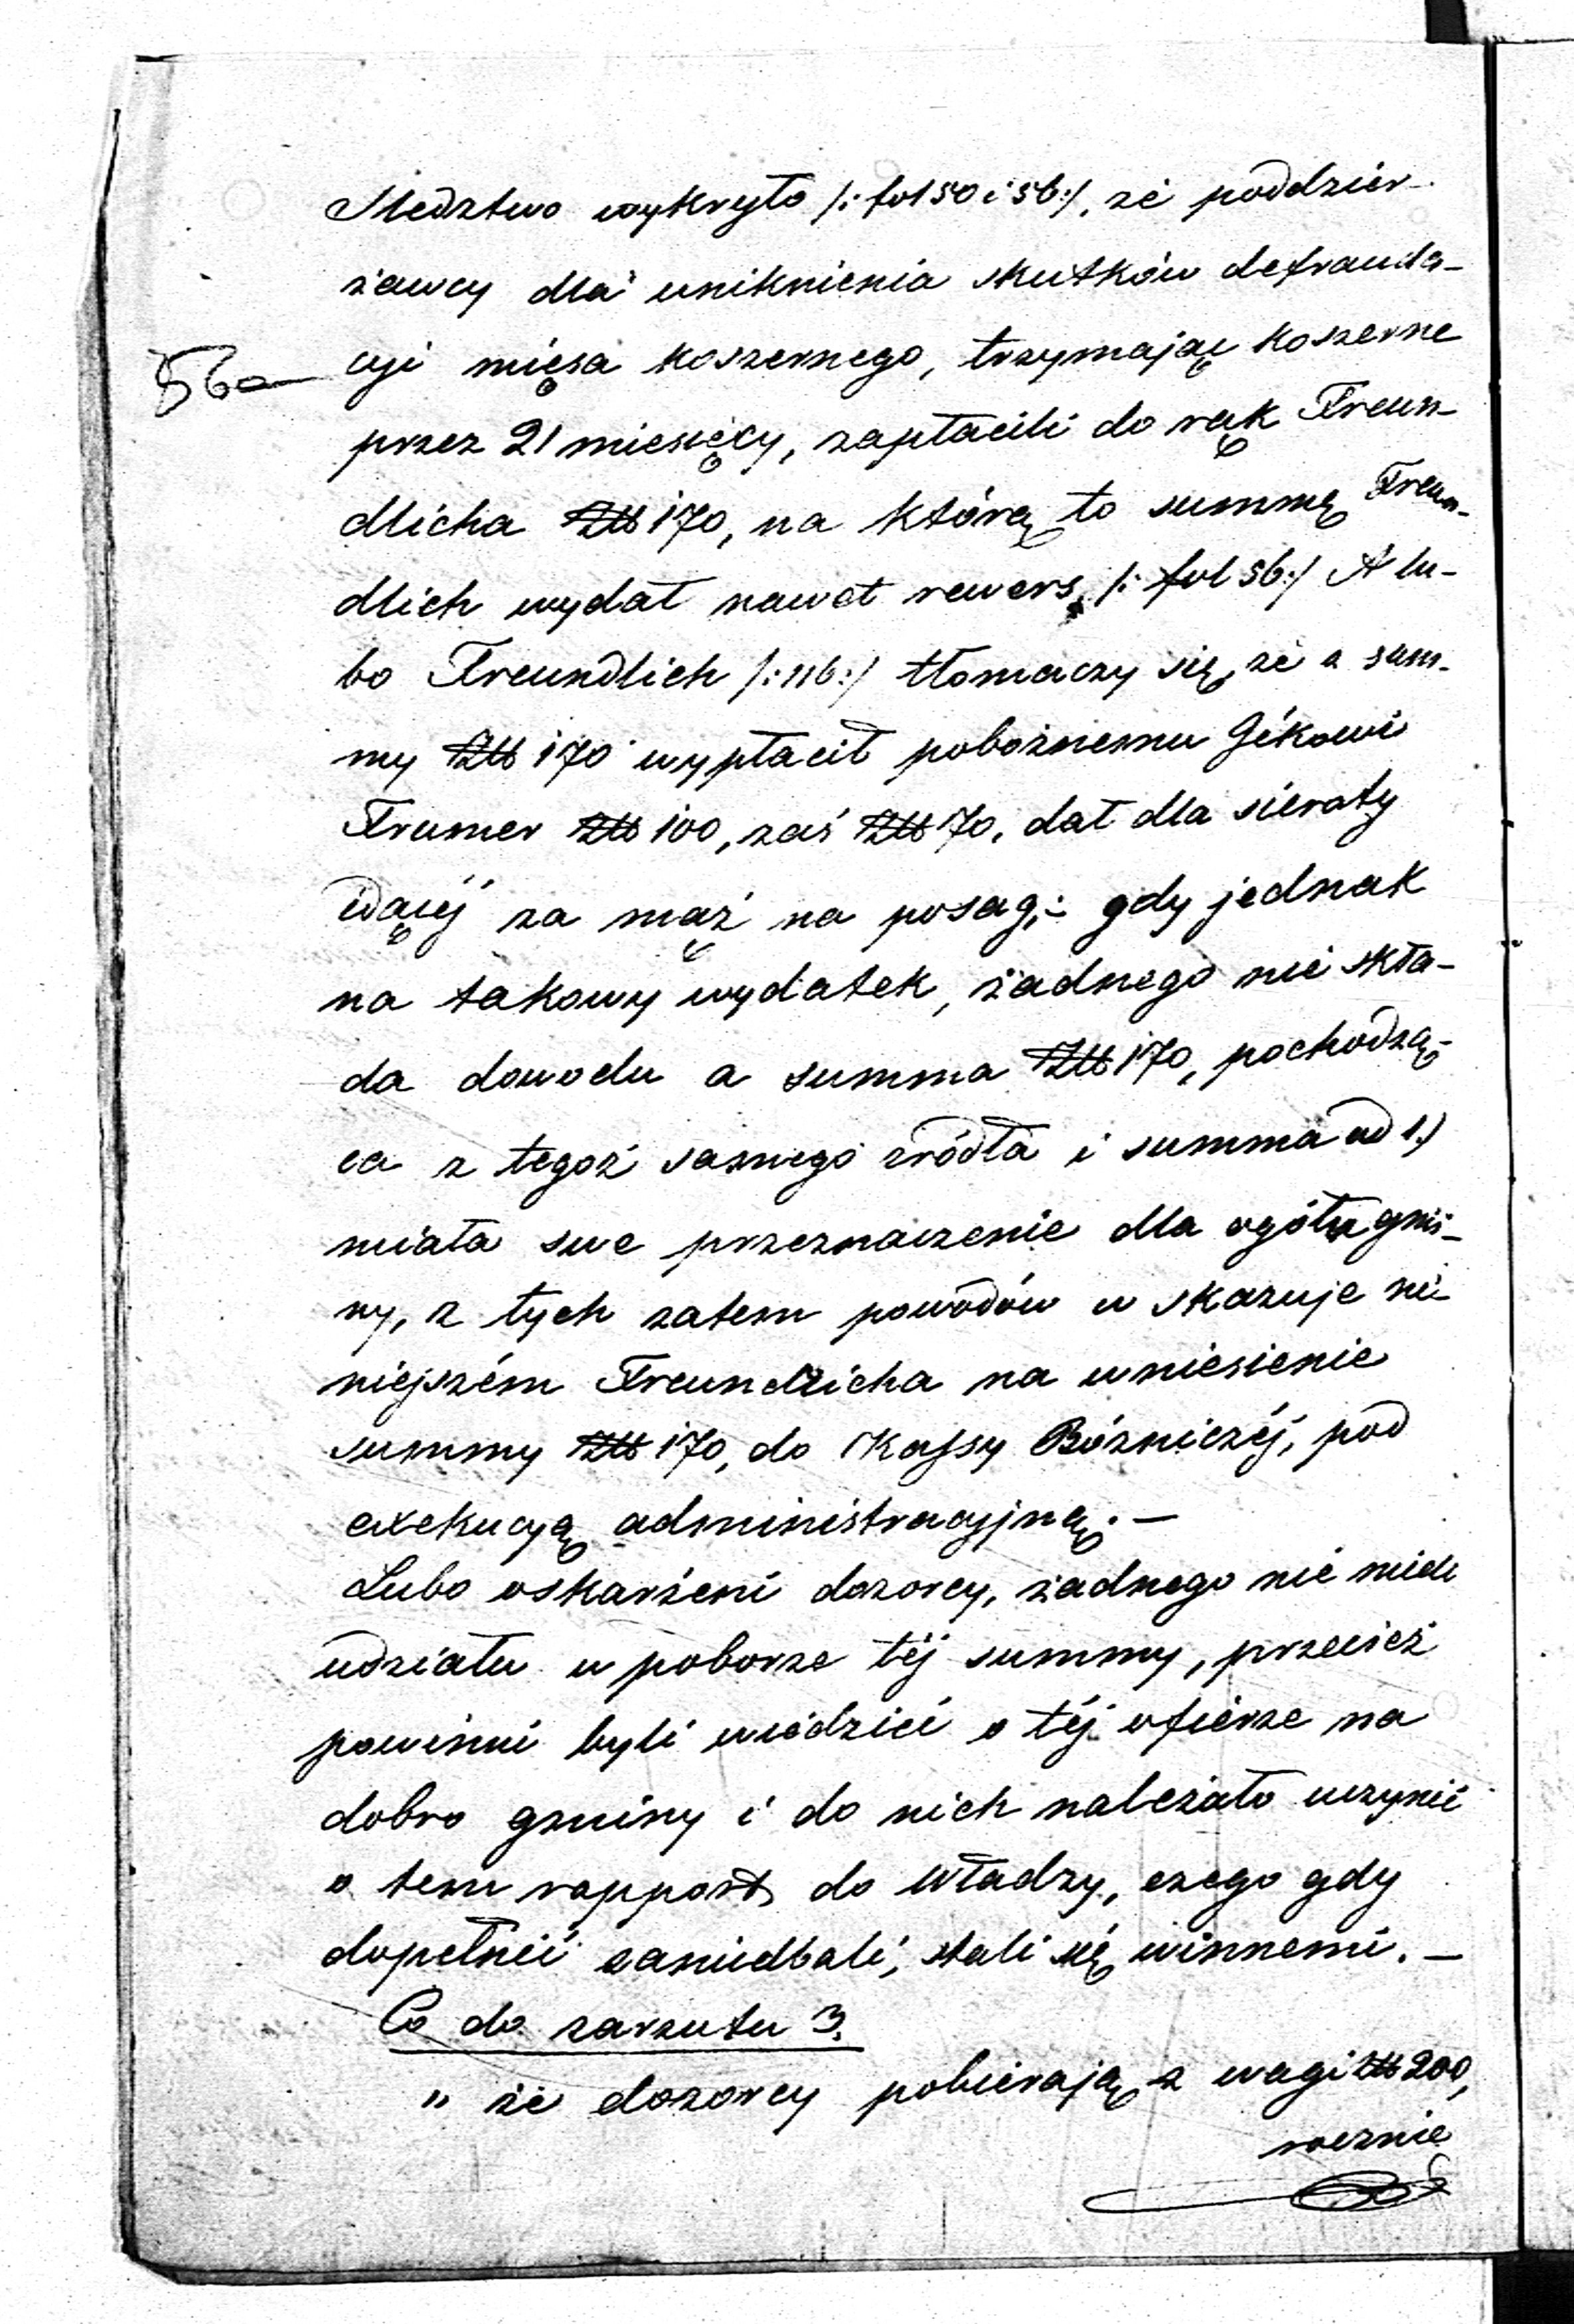 Sledztwo wykryło /: fol 50 i 56:/, że poddzier-
żawcy dla uniknienia skutków defrauda-
cyi mięsa koszernego, trzymając koszerne
56a
przez 21 miesięcy, zapłacili do rąk Freun-
dlicha Złł 170, na którą to summę Freun-
dlich wydał nawet rewers, /: fol 56:/ A lu-
bo Freundlich /: 116:/ tłomaczy się, że z sum-
my Złł 170 wypłacił pobożnemu Gékowi
Frumer Złł 100, zaś Złł 70, dał dla sieroty
idącéj za mąż na posag,: gdy jednak
na takowy wydatek, żadnego nie skła-
da dowodu a summa Złł 170, pochodzą-
ca z tegoż samego źródła i summa ad 1.)
miała swe przeznaczenie dla ogółu gmi-
ny, z tych zatem powodów wskazuje ni-
niejszém Freundlicha na wniesienie
summy Złł 170, do Kassy Bóżniczéj, pod
exekucyą administracyjną. —
Lubo oskarżeni dozorcy, żadnego nie mieli
udziału w poborze téj summy, przecież
powinni byli wiedzieć o téj ofierze na
dobro gminy i do nich należało uczynić
o tem rapport do Władzy, czego gdy
dopełnić zaniedbali, stali się winnemi. —
Co do zarzutu 3.
" że dozorcy pobierają z wagi Złł 200,
rocznie